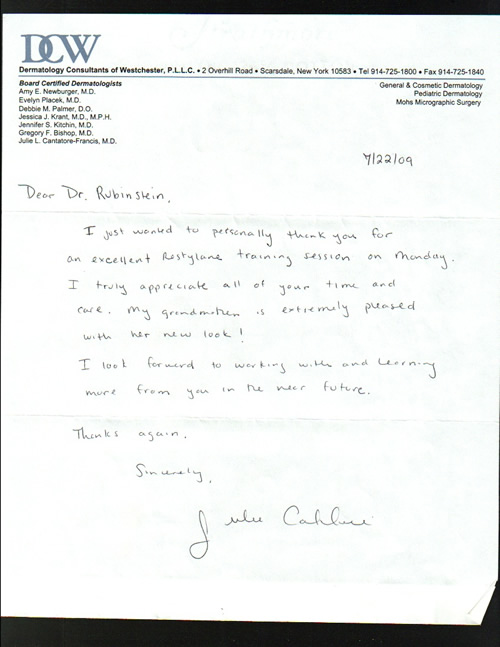 DCW
Dermatology Consultants of Westchester, P.L.L.C. • 2 Overhill Road • Scarsdale, New York 10583 • Tel 914-725-1800 • Fax 914-725-1840
Board Certified Dermatologists
Amy E. Newburger, M.D.
Evelyn Placek, M.D.
Debbie M. Palmer, D.O.
Jessica J. Krant, M.D., M.P.H.
Jennifer S. Kitchin, M.D.
Gregory F. Bishop, M.D.
Julie L. Cantatore-Francis, M.D.
General & Cosmetic Dermatology
Pediatric Dermatology
Mohs Micrographic Surgery
7/22/09
Dear Dr. Rubinstein,
I just wanted to personally thank you for
an excellent Restylane training session on Monday.
I truly appreciate all of your time and
care. My grandmother is extremely pleased
with her new look!
I look forward to working with and learning
more from you in the near future.
Thanks again.
Sincerely,
Julie